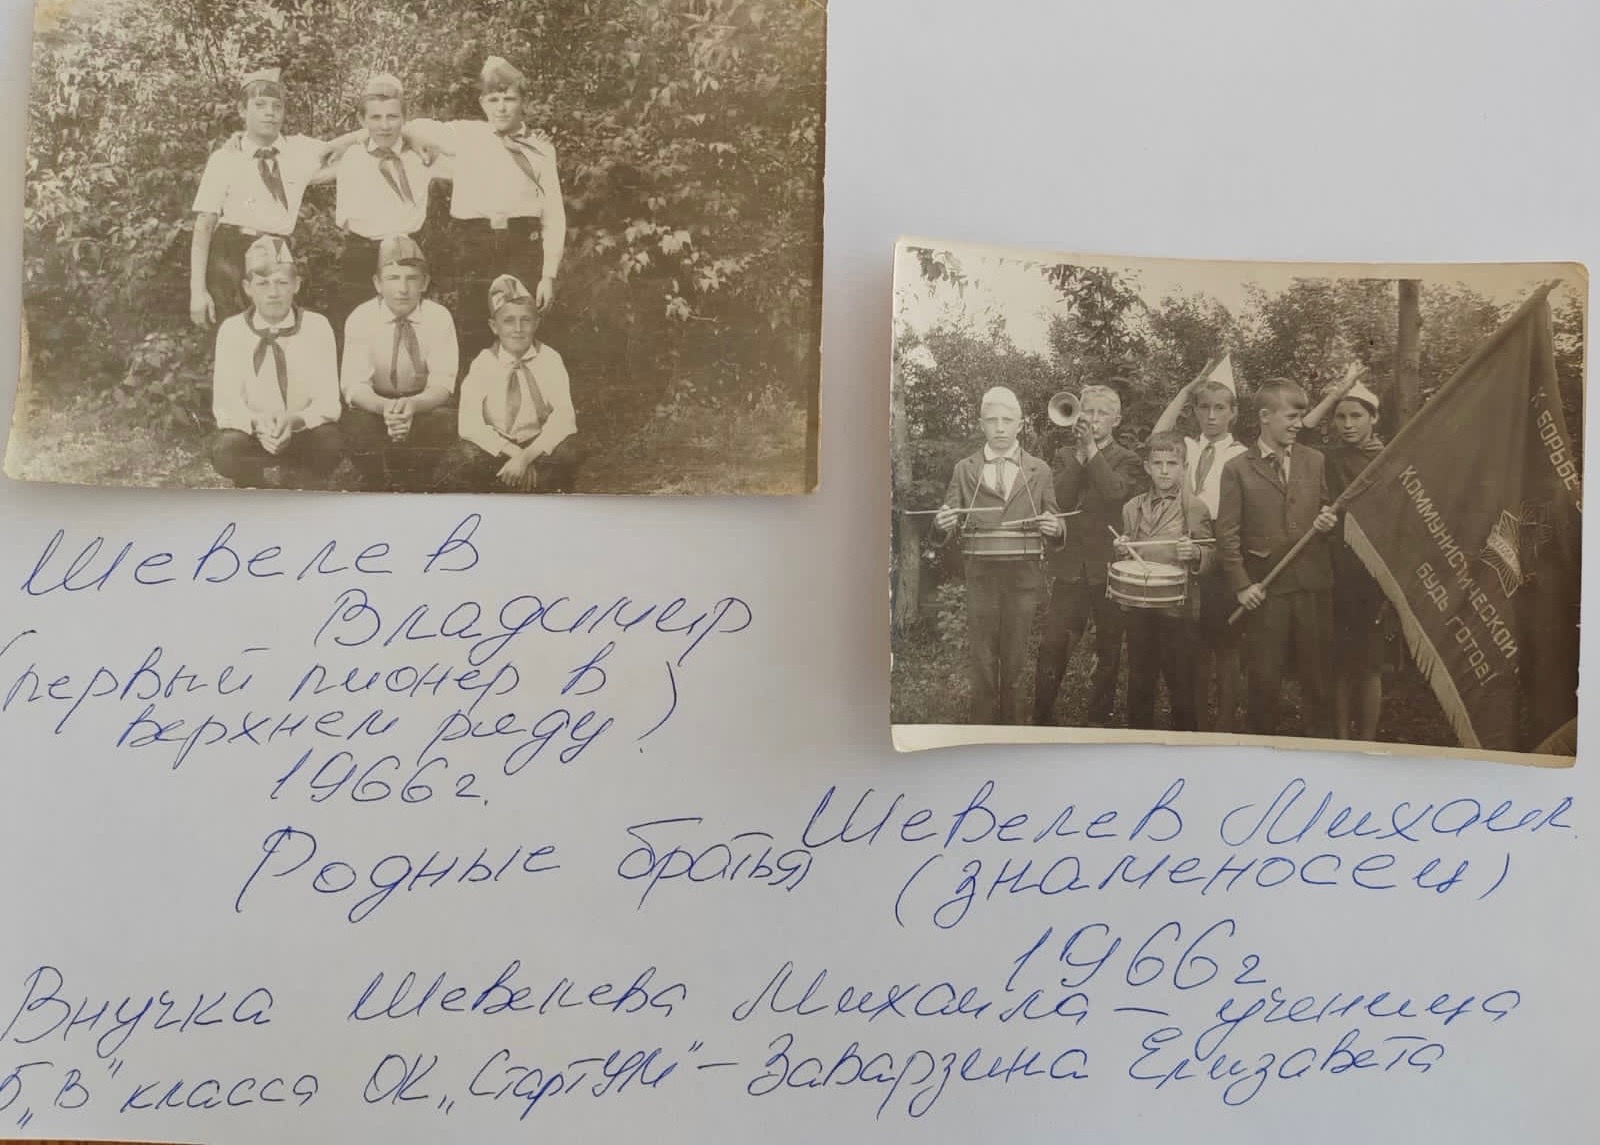 К БОРЬБЕ
КОММУНИСТИЧЕСКОЙ
БУДЬ ГОТОВ!
Шевелев
Владимир
(первый пионер в
верхнем ряду)
1966г.
Родные братья
Шевелев Михаил
(знаменосец)
1966г
Внучка Шевелева Михаила — ученица
5„В" класса ОК „СтартУМ" — Заварзина Елизавета